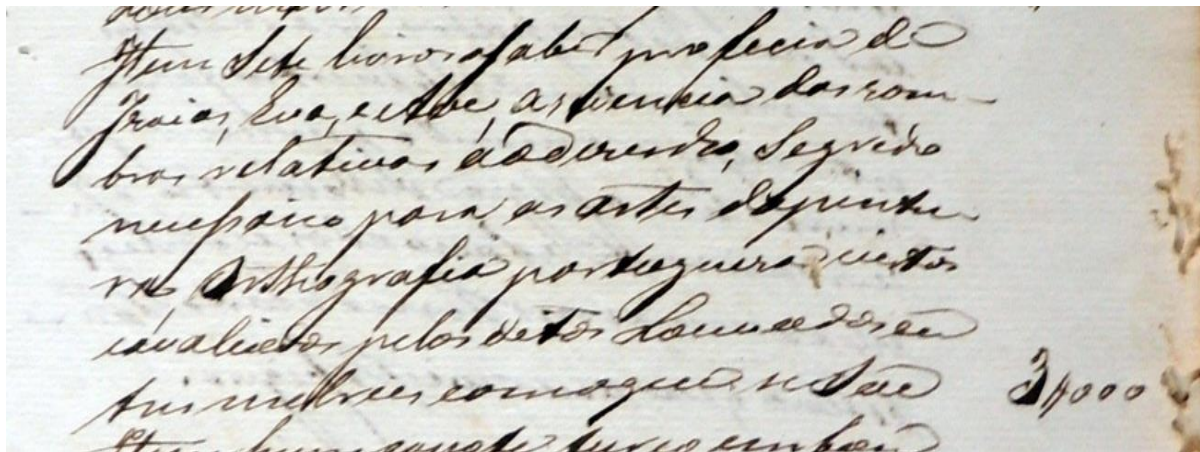 Item Sete livros a saber profecia de
Izaias, Eva, e Ave, as siencia das som-
bras relativas ao dezenho, Segredo
necessario para as artes da pintu-
ra Orthografia portugueza vistos
e avaliados pelos ditos Louvados em
tres mil reis com que se Sae 3$000
Item hum